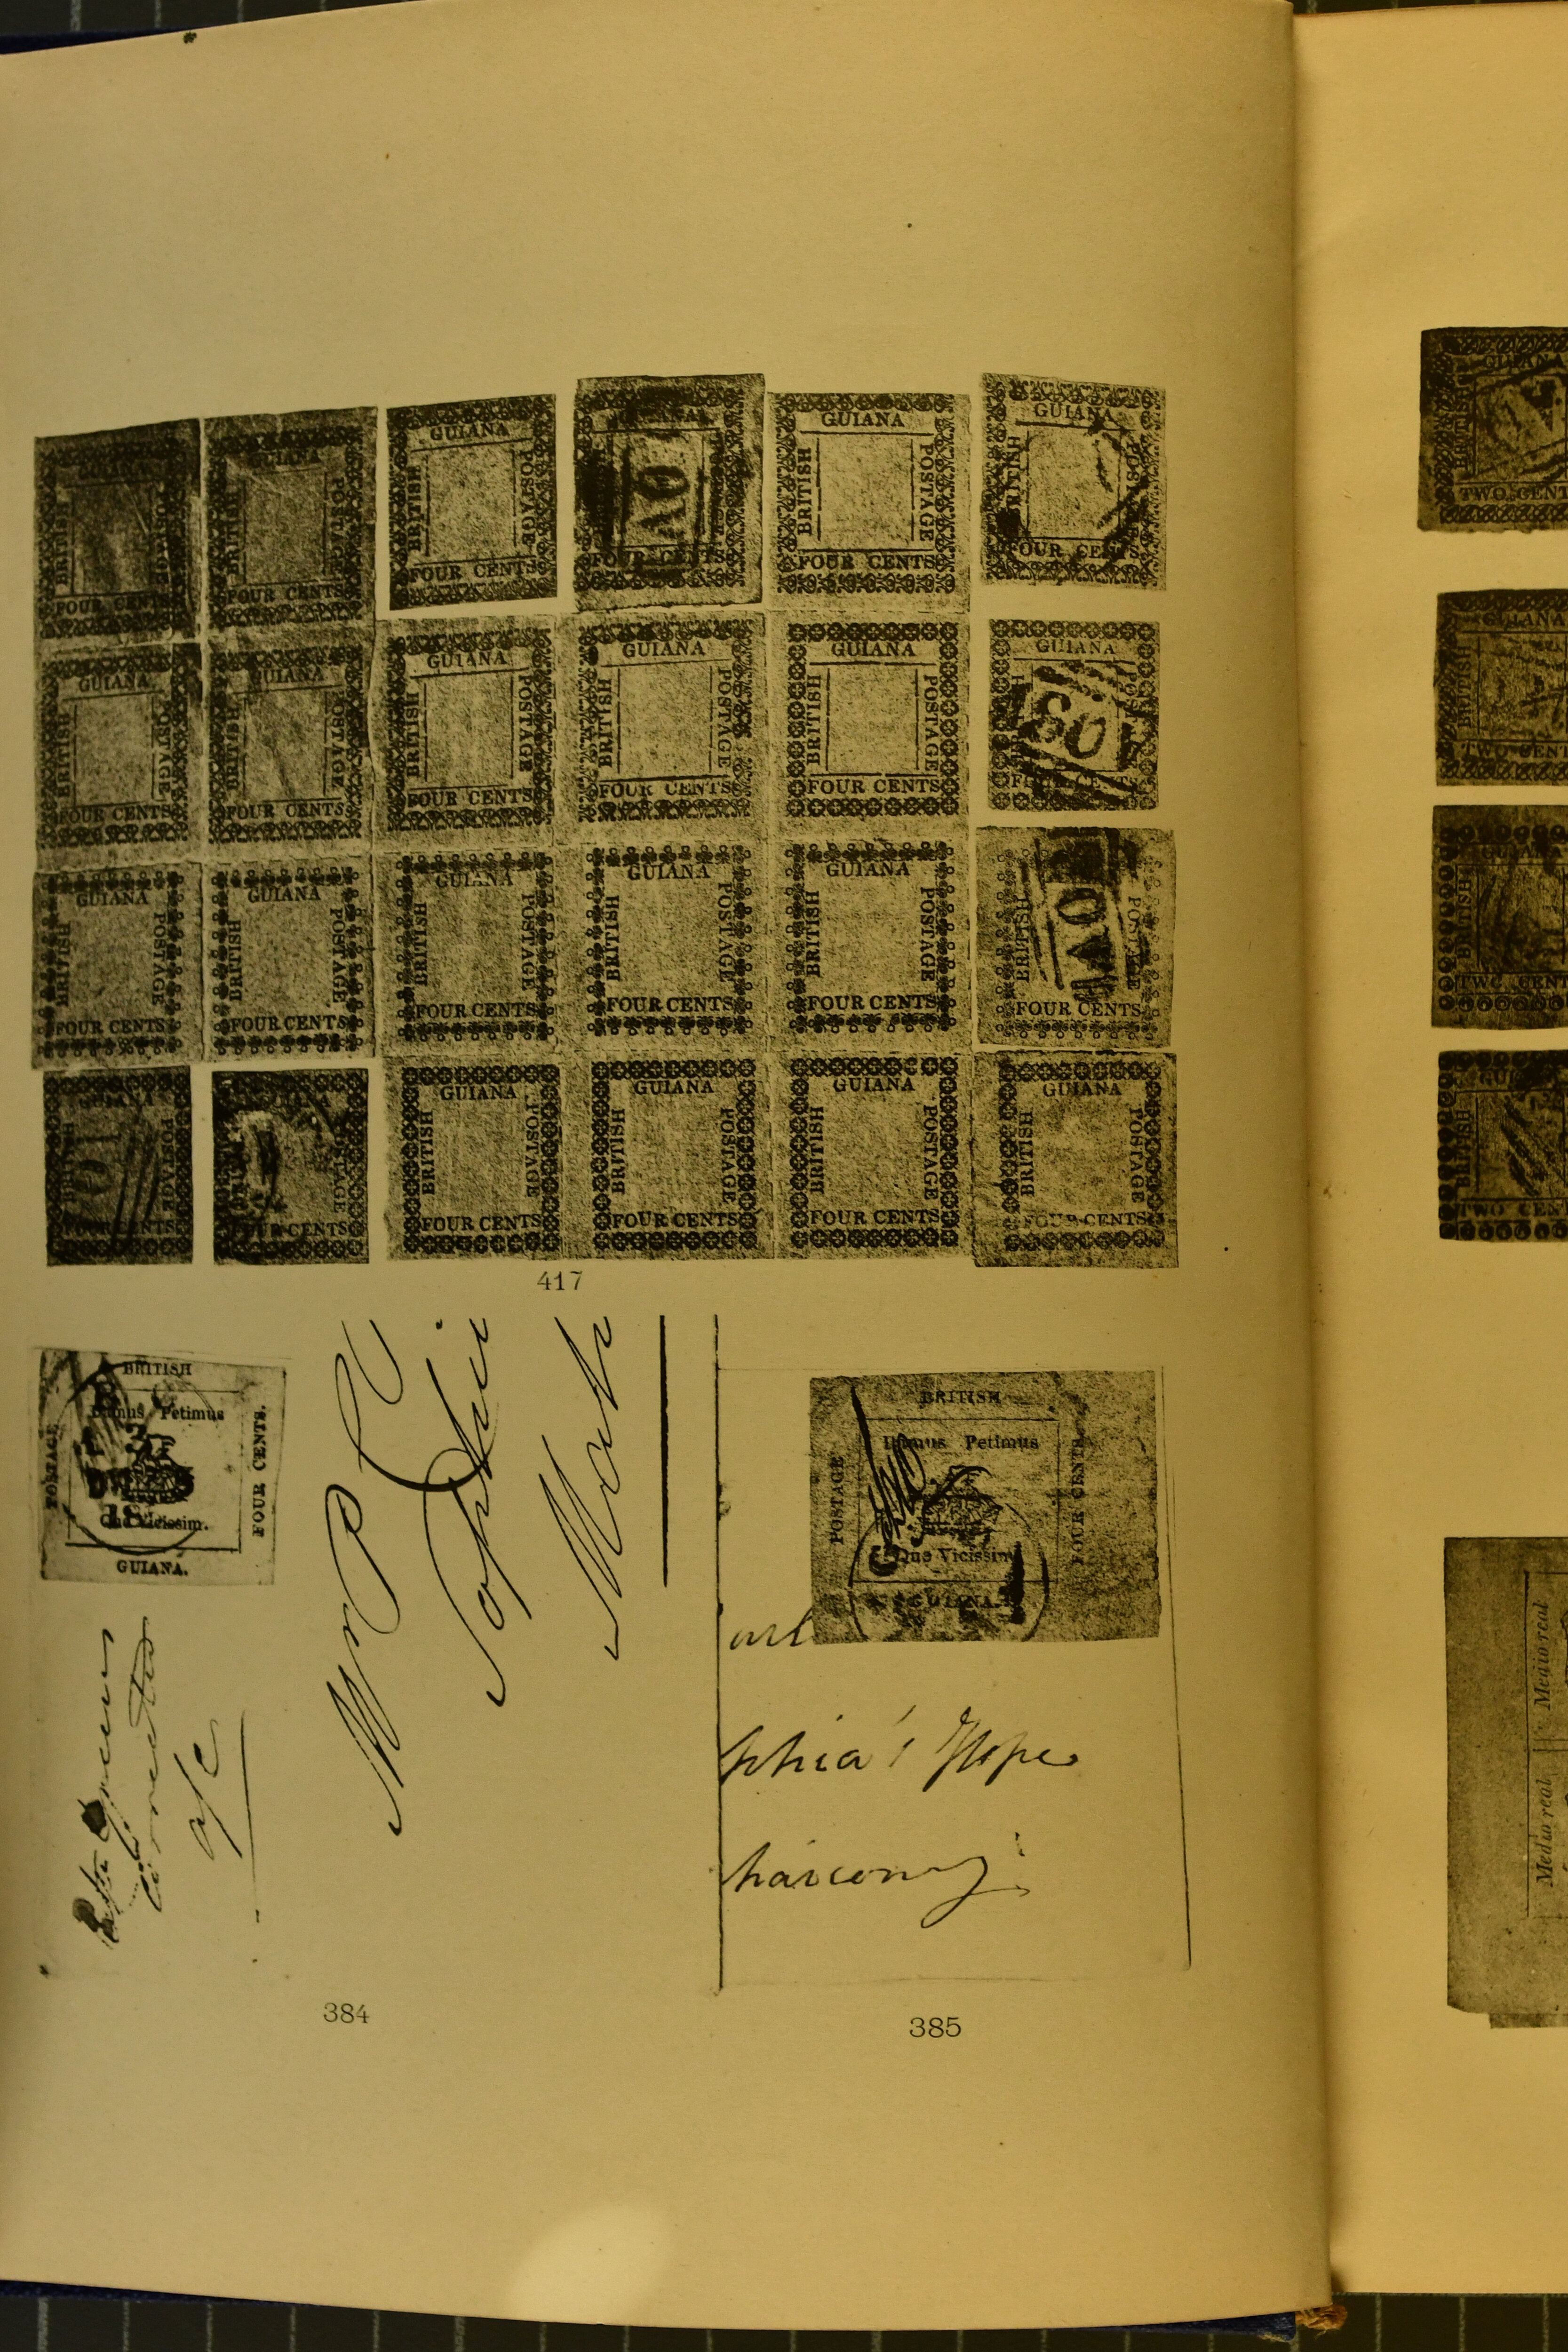 GUIANA
BRITISH
POSTAGE
FOUR CENTS
GUIANA
BRITISH
POSTAGE
FOUR CENTS
GUIANA
BRITISH
POSTAGE
FOUR CENTS
GUIANA
FOUR CENTS
A0
GUIANA
BRITISH
POSTAGE
FOUR CENTS
GUIANA
BRITISH
FOUR CENTS
GUIANA
BRITISH
POSTAGE
FOUR CENTS
GUIANA
BRITISH
POSTAGE
FOUR CENTS
GUIANA
BRITISH
POSTAGE
FOUR CENTS
GUIANA
BRITISH
POSTAGE
FOUR CENTS
GUIANA
BRITISH
POSTAGE
FOUR CENTS
GUIANA
FOUR CENTS
GUIANA
BRITISH
POSTAGE
FOUR CENTS
GUIANA
BRITISH
POSTAGE
FOUR CENTS
GUIANA
BRITISH
POSTAGE
FOUR CENTS
GUIANA
BRITISH
POSTAGE
FOUR CENTS
GUIANA
BRITISH
POSTAGE
FOUR CENTS
BRITISH
POSTAGE
FOUR CENTS
A0
GUIANA
BRITISH
POSTAGE
FOUR CENTS
POSTAGE
FOUR CENTS
GUIANA
BRITISH
POSTAGE
FOUR CENTS
GUIANA
BRITISH
POSTAGE
FOUR CENTS
GUIANA
BRITISH
POSTAGE
FOUR CENTS
GUIANA
BRITISH
POSTAGE
FOUR CENTS
417
BRITISH
POSTAGE
Damus Petimus
Que Vicissim.
FOUR CENTS.
GUIANA.
384
BRITISH
POSTAGE
Damus Petimus
Que Vicissim
FOUR CENTS.
GUIANA.
phia's Hope
385
GUIANA
BRITISH
TWO CENT
GUIANA
BRITISH
TWO CENT
BRITISH
TWO CENT
BRITISH
TWO CENT
Medio real
Medio real